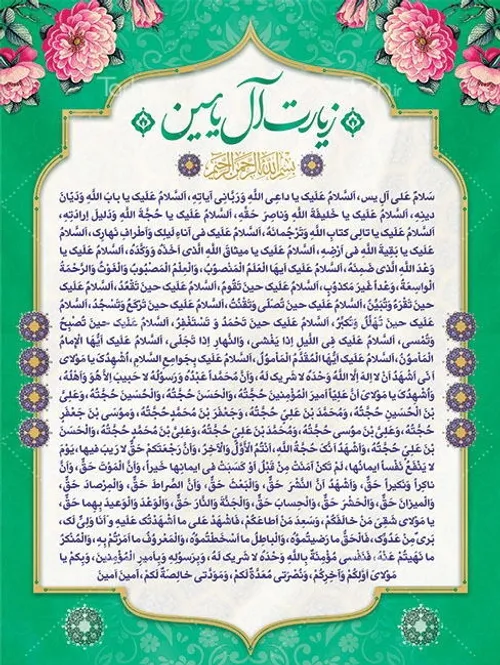 زیارت آل یاسین
بسم الله الرحمن الرحیم
سَلامٌ عَلی آلِ یس، اَلسَّلامُ عَلَیْکَ یا داعِیَ اللَّهِ وَرَبّانِیَّ آیاتِهِ، اَلسَّلامُ عَلَیْکَ یا بابَ اللَّهِ وَدَیّانَ
دینِهِ، اَلسَّلامُ عَلَیْکَ یا خَلیفَةَ اللَّهِ وَناصِرَ حَقِّهِ، اَلسَّلامُ عَلَیْکَ یا حُجَّةَ اللَّهِ وَدَلیلَ اِرادَتِهِ،
اَلسَّلامُ عَلَیْکَ یا تالِیَ کِتابِ اللَّهِ وَتَرْجُمانَهُ، اَلسَّلامُ عَلَیْکَ فی آناءِ لَیْلِکَ وَاَطْرافِ نَهارِکَ، اَلسَّلامُ
عَلَیْکَ یا بَقِیَّةَ اللَّهِ فی اَرْضِهِ، اَلسَّلامُ عَلَیْکَ یا میثاقَ اللَّهِ الَّذی اَخَذَهُ وَوَکَّدَهُ، اَلسَّلامُ عَلَیْکَ یا
وَعْدَ اللَّهِ الَّذی ضَمِنَهُ، اَلسَّلامُ عَلَیْکَ اَیُّهَا الْعَلَمُ الْمَنْصُوبُ، وَالْعِلْمُ الْمَصْبُوبُ وَالْغَوْثُ وَالرَّحْمَةُ
الْواسِعَةُ، وَعْداً غَیْرَ مَکْذوُبٍ، اَلسَّلامُ عَلَیْکَ حینَ تَقوُمُ، اَلسَّلامُ عَلَیْکَ حینَ تَقْعُدُ، اَلسَّلامُ عَلَیْکَ
حینَ تَقْرَءُ وَتُبَیِّنُ، اَلسَّلامُ عَلَیْکَ حینَ تُصَلّی وَتَقْنُتُ، اَلسَّلامُ عَلَیْکَ حینَ تَرْکَعُ وَتَسْجُدُ، اَلسَّلامُ
عَلَیْکَ حینَ تُهَلِّلُ وَتُکَبِّرُ، اَلسَّلامُ عَلَیْکَ حینَ تَحْمَدُ وَ تَسْتَغْفِرُ، اَلسَّلامُ عَلَیْکَ حینَ تُصْبِحُ
وَتُمْسی، اَلسَّلامُ عَلَیْکَ فِی اللَّیْلِ اِذا یَغْشی، وَالنَّهارِ اِذا تَجَلّی، اَلسَّلامُ عَلَیْکَ اَیُّهَا الْاِمامُ
الْمَاْموُنُ، اَلسَّلامُ عَلَیْکَ اَیُّهَا الْمُقَدَّمُ الْمَاْموُلُ، اَلسَّلامُ عَلَیْکَ بِجَوامِعِ السَّلامِ، اُشْهِدُکَ یا مَوْلایَ
اَنّی اَشْهَدُ اَنْ لا اِلهَ اِلاَّ اللَّهُ وَحْدَهُ لا شَریکَ لَهُ، وَاَنَّ مُحَمَّداً عَبْدُهُ وَرَسوُلُهُ لا حَبیبَ اِلاَّ هُوَ وَاَهْلُهُ،
وَاُشْهِدُکَ یا مَوْلایَ اَنَّ عَلِیّاً اَمیرَ الْمُؤْمِنینَ حُجَّتُهُ، وَالْحَسَنَ حُجَّتُهُ، وَالْحُسَیْنَ حُجَّتُهُ، وَعَلِیَّ
بْنَ الْحُسَیْنِ حُجَّتُهُ، وَمُحَمَّدَ بْنَ عَلِیٍّ حُجَّتُهُ، وَجَعْفَرَ بْنَ مُحَمَّدٍ حُجَّتُهُ، وَموُسَی بْنَ جَعْفَرٍ
حُجَّتُهُ، وَعَلِیَّ بْنَ موُسی حُجَّتُهُ، وَمُحَمَّدَ بْنَ عَلِیٍّ حُجَّتُهُ، وَعَلِیَّ بْنَ مُحَمَّدٍ حُجَّتُهُ، وَالْحَسَنَ
بْنَ عَلِیٍّ حُجَّتُهُ، وَاَشْهَدُ اَنَّکَ حُجَّةُ اللَّهِ، اَنْتُمُ الْاَوَّلُ وَالْآخِرُ، وَاَنَّ رَجْعَتَکُمْ حَقٌّ لا رَیْبَ فیها، یَوْمَ
لا یَنْفَعُ نَفْساً ایمانُها، لَمْ تَکُنْ آمَنَتْ مِنْ قَبْلُ اَوْ کَسَبَتْ فی ایمانِها خَیْراً، وَاَنَّ الْمَوْتَ حَقٌّ، وَاَنَّ
ناکِراً وَنَکیراً حَقٌّ، وَاَشْهَدُ اَنَّ النَّشْرَ حَقٌّ، وَالْبَعْثَ حَقٌّ، وَاَنَّ الصِّراطَ حَقٌّ، وَالْمِرْصادَ حَقٌّ،
وَالْمیزانَ حَقٌّ، وَالْحَشْرَ حَقٌّ، وَالْحِسابَ حَقٌّ، وَالْجَنَّةَ وَالنَّارَ حَقٌّ، وَالْوَعْدَ وَالْوَعیدَ بِهِما حَقٌّ،
یا مَوْلایَ شَقِیَ مَنْ خالَفَکُمْ، وَسَعِدَ مَنْ اَطاعَکُمْ، فَاشْهَدْ عَلی ما اَشْهَدْتُکَ عَلَیْهِ وَ اَنَا وَلِیٌّ لَکَ،
بَریءٌ مِنْ عَدُوِّکَ، فَالْحَقُّ ما رَضیتُموُهُ، وَالْباطِلُ ما اَسْخَطْتُموُهُ، وَالْمَعْروُفُ ما اَمَرْتُمْ بِهِ، وَالْمُنْکَرُ
ما نَهَیْتُمْ عَنْهُ، فَنَفْسی مُؤْمِنَةٌ بِاللَّهِ وَحْدَهُ لا شَریکَ لَهُ، وَبِرَسوُلِهِ وَبِاَمیرِ الْمُؤْمِنینَ، وَبِکُمْ یا
مَوْلایَ اَوَّلِکُمْ وَآخِرِکُمْ، وَنُصْرَتی مُعَدَّةٌ لَکُمْ، وَمَوَدَّتی خالِصَةٌ لَکُمْ، آمینَ آمینَ